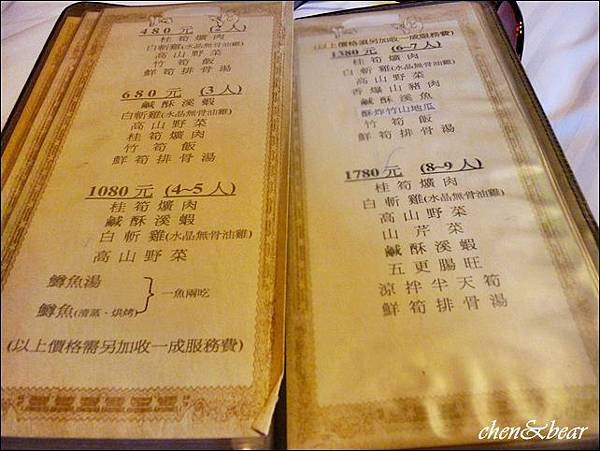 480元 (2人)
桂筍爌肉
白斬雞(水晶無骨油雞)
高山野菜
竹筍飯
鮮筍排骨湯
680元 (3人)
鹹酥溪蝦
白斬雞(水晶無骨油雞)
高山野菜
桂筍爌肉
竹筍飯
鮮筍排骨湯
1080元 (4~5人)
桂筍爌肉
鹹酥溪蝦
白斬雞(水晶無骨油雞)
高山野菜
鱒魚湯
一魚兩吃
鱒魚(清蒸、烘烤)
(以上價格需另加收一成服務費)
(以上價格需另加收一成服務費)
1380元 (6~7人)
桂筍爌肉
白斬雞(水晶無骨油雞)
高山野菜
香爆山豬肉
鹹酥溪魚
酥炸竹山地瓜
竹筍飯
鮮筍排骨湯
1780元 (8~9人)
桂筍爌肉
白斬雞(水晶無骨油雞)
高山野菜
山芹菜
鹹酥溪蝦
五更腸旺
涼拌半天筍
鮮筍排骨湯
chen&bear